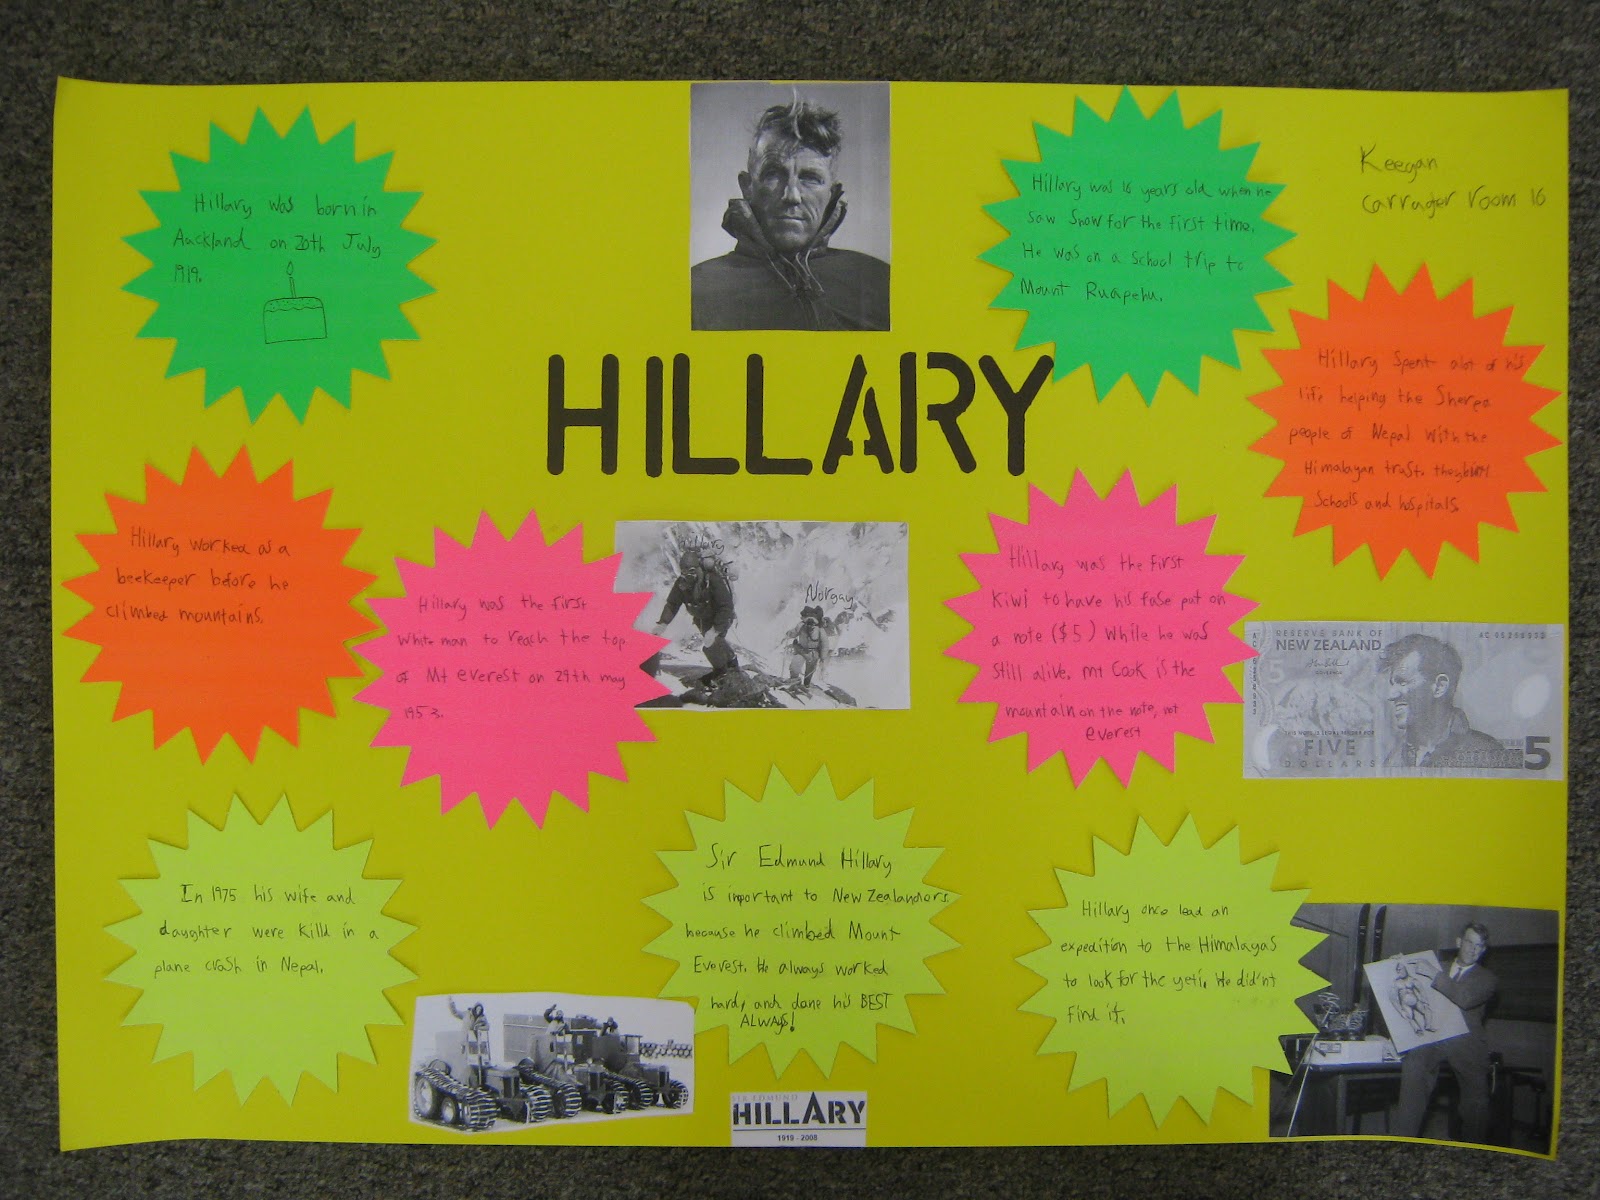 Hillary was born in
Auckland on 20th July
1919.
Hillary was 16 years old when he
saw snow for the first time.
He was on a school trip to
Mount Ruapehu.
Keegan
Carragter room 16
HILLARY
Hillary spent alot of his
life helping the Sherpa
people of Nepal with the
Himalayan trust. they
Schools and hospitals.
Hillary worked as a
beekeeper before he
climbed mountains.
Hillary was the first
white man to reach the top
of Mt everest on 29th may
1953.
Hillary
Norgay
Hillary was the first
Kiwi to have his fase put on
a note ($5) While he was
still alive. mt Cook is the
mountain on the note, not
everest
RESERVE BANK OF
NEW ZEALAND
5
FIVE
DOLLARS
5
In 1975 his wife and
daughter were killd in a
plane crash in Nepal.
Sir Edmund Hillary
is important to New Zealanders
because he climbed Mount
Everest. He always worked
hard, and done his BEST
ALWAYS!
Hillary once lead an
expedition to the Himalayas
to look for the yeti. He did'nt
find it.
SIR EDMUND
HILLARY
1919 - 2008